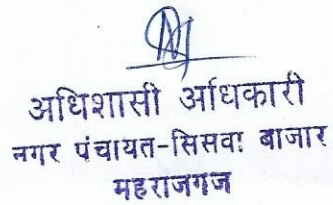 अधिशासी अधिकारी
नगर पंचायत-सिसवा बाजार
महराजगज